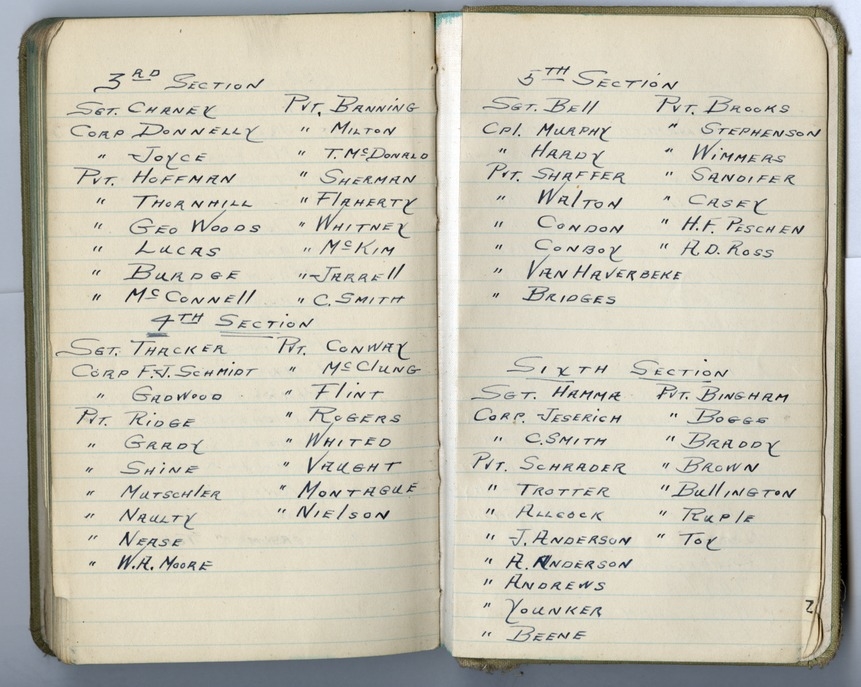 3RD SECTION
SGT. CHANEY PVT. BANNING
CORP DONNELLY " MILTON
" JOYCE " T. McDONALD
PVT. HOFFMAN " SHERMAN
" THORNHILL " FLAHERTY
" GEO WOODS " WHITNEY
" LUCAS " McKIM
" BURDGE " JARRELL
" McCONNELL " C. SMITH
4TH SECTION
SGT. THACKER PVT. CONWAY
CORP F.J. SCHMIDT " McCLUNG
" GADWOOD " FLINT
PVT. RIDGE " ROGERS
" GRADY " WHITED
" SHINE " VAUGHT
" MUTSCHLER " MONTAGUE
" NAULTY " NIELSON
" NEASE
" W.A. MOORE
5TH SECTION
SGT. BELL PVT. BROOKS
CPL. MURPHY " STEPHENSON
" HARDY " WIMMERS
PVT. SHAFFER " SANDIFER
" WALTON " CASEY
" CONDON " H.F. PESCHEN
" CONBOY " A.D. ROSS
" VAN HAVERBEKE
" BRIDGES
SIXTH SECTION
SGT. HAMMA PVT. BINGHAM
CORP. JESERICH " BOGGS
" C. SMITH " BRADDY
PVT. SCHRADER " BROWN
" TROTTER " BULLINGTON
" ALLCOCK " RUPLE
" J. ANDERSON " TOY
" A. ANDERSON
" ANDREWS
" YOUNKER
" BEENE